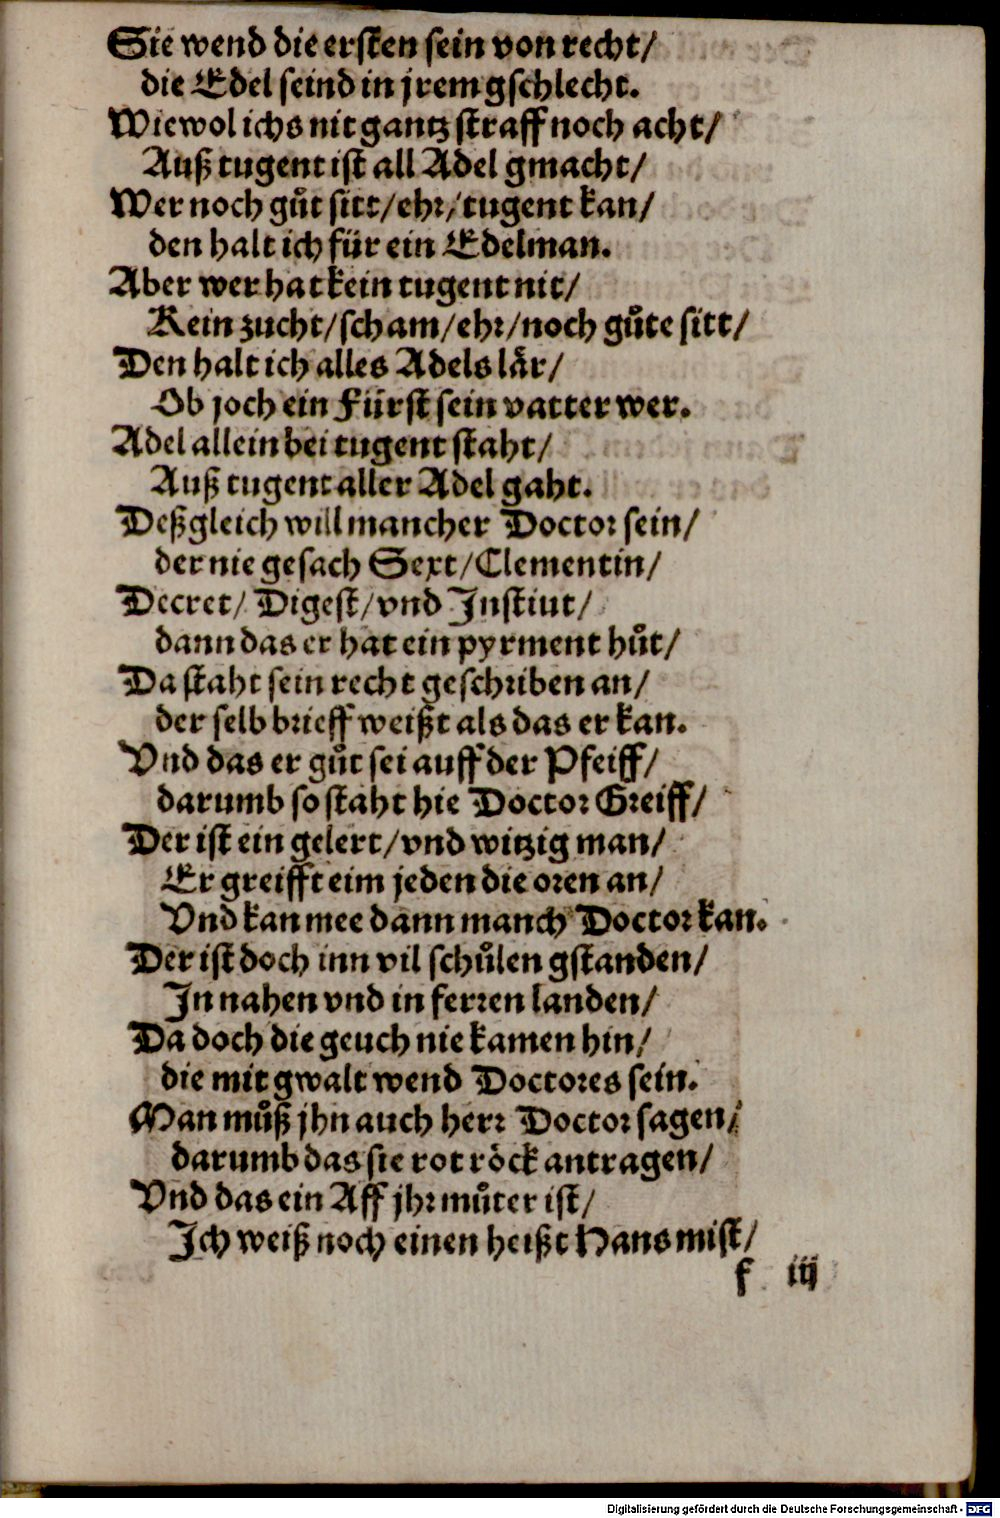 Sie wend die ersten sein von recht/
die Edel seind in jrem gschlecht.
Wiewol ichs nit gantz straff noch acht/
Auß tugent ist all Adel gmacht/
Wer noch gůt sitt/ehr/tugent kan/
den halt ich für ein Edelman.
Aber wer hat kein tugent nit/
Kein zucht/scham/ehr/noch gůte sitt/
Den halt ich alles Adels lår/
Ob joch ein Fürst sein vatter wer.
Adel allein bei tugent staht/
Auß tugent aller Adel gaht.
Deßgleich will mancher Doctor sein/
der nie gesach Sext/Clementin/
Decret/ Digest/vnd Instiut/
dann das er hat ein pyrment hůt/
Da staht sein recht geschriben an/
der selb brieff weißt als das er kan.
Vnd das er gůt sei auff der Pfeiff/
darumb so staht hie Doctor Greiff/
Der ist ein gelert/vnd witzig man/
Er greifft eim jeden die oren an/
Vnd kan mee dann manch Doctor kan.
Der ist doch inn vil schůlen gstanden/
In nahen vnd in ferren landen/
Da doch die geuch nie kamen hin/
die mit gwalt wend Doctores sein.
Man můß jhn auch herr Doctor sagen/
darumb das sie rot röck antragen/
Vnd das ein Aff jhr můter ist/
Ich weiß noch einen heißt Hans mist/
f iij
Digitalisierung gefördert durch die Deutsche Forschungsgemeinschaft - DFG